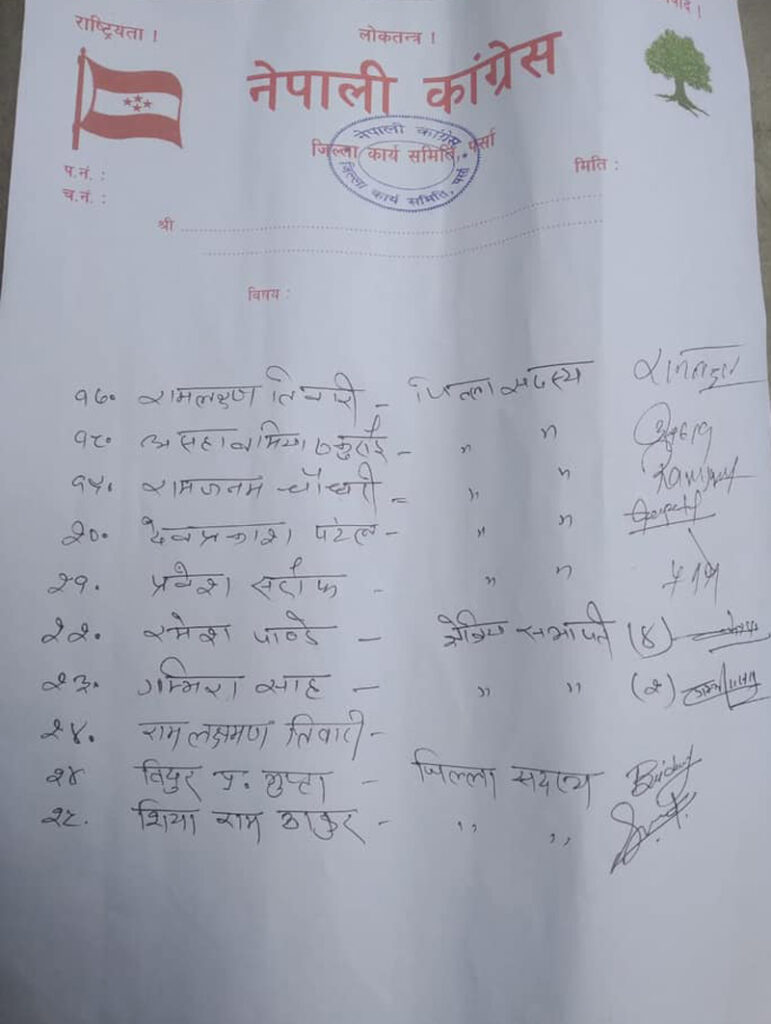 राष्ट्रियता ।
लोकतन्त्र ।
नेपाली कांग्रेस
जिल्ला कार्य समिति, पर्सा
नेपाली कांग्रेस
जिल्ला कार्य समिति, पर्सा
प.नं. :
च.नं. :
मिति :
श्री
विषय :
१७. रामलक्ष्ण तिवारी - जिल्ला सदस्य
१८. - " "
१९. रामजनम चौधरी - " "
२०. देवप्रकाश पटेल - " "
२१. प्रवेश सर्राफ - " "
२२. रमेश पाण्डे - क्षेत्रिय सभापती (४)
२३. गम्भिरा साह - " " (२)
२४. राम लक्षमण तिवारी -
२५ विदुर प्र. गुप्ता - जिल्ला सदस्य
२६. शिया राम ठाकुर - " "